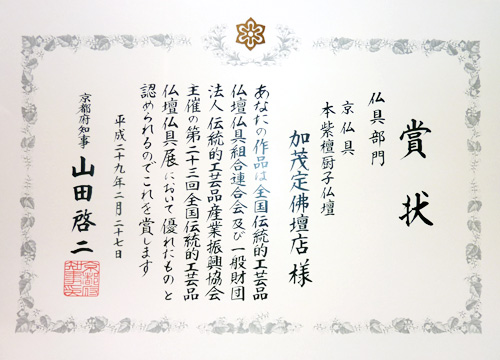 賞状
仏具部門
京仏具
本紫檀厨子仏壇
加茂定佛壇店様
あなたの作品は全国伝統的工芸品
仏壇仏具組合連合会及び一般財団
法人伝統的工芸品産業振興協会
主催の第二十三回全国伝統的工芸品
仏壇仏具展において優れたものと
認められるのでこれを賞します
平成二十九年二月二十七日
京都府知事 山田啓二